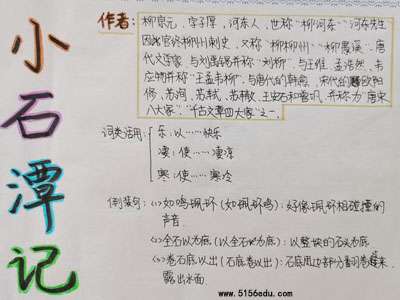 小石潭记
作者：柳宗元，字子厚，河东人，世称“柳河东”“河东先生
因其官终柳州刺史，又称“柳柳州”“柳愚溪”，唐
代文学家 与刘禹锡并称“刘柳”，与王维、孟浩然、韦
应物并称“王孟韦柳”，与唐代的韩愈、宋代的欧阳
修、苏洵、苏轼、苏辙、王安石和曾巩，并称为“唐宋
八大家”，“千古文章四大家”之一.
词类活用：乐：以……快乐
凄：使……凄凉
寒：使……寒冷
倒装句：(1)如鸣珮环(如珮环鸣)：好像珮环相碰撞的
声音
(2)全石以为底(以全石为底)：以整块的石头为底
(3)卷石底以出(石底卷以出)：石底周边部分翻卷起来
露出水面
www.5156edu.com